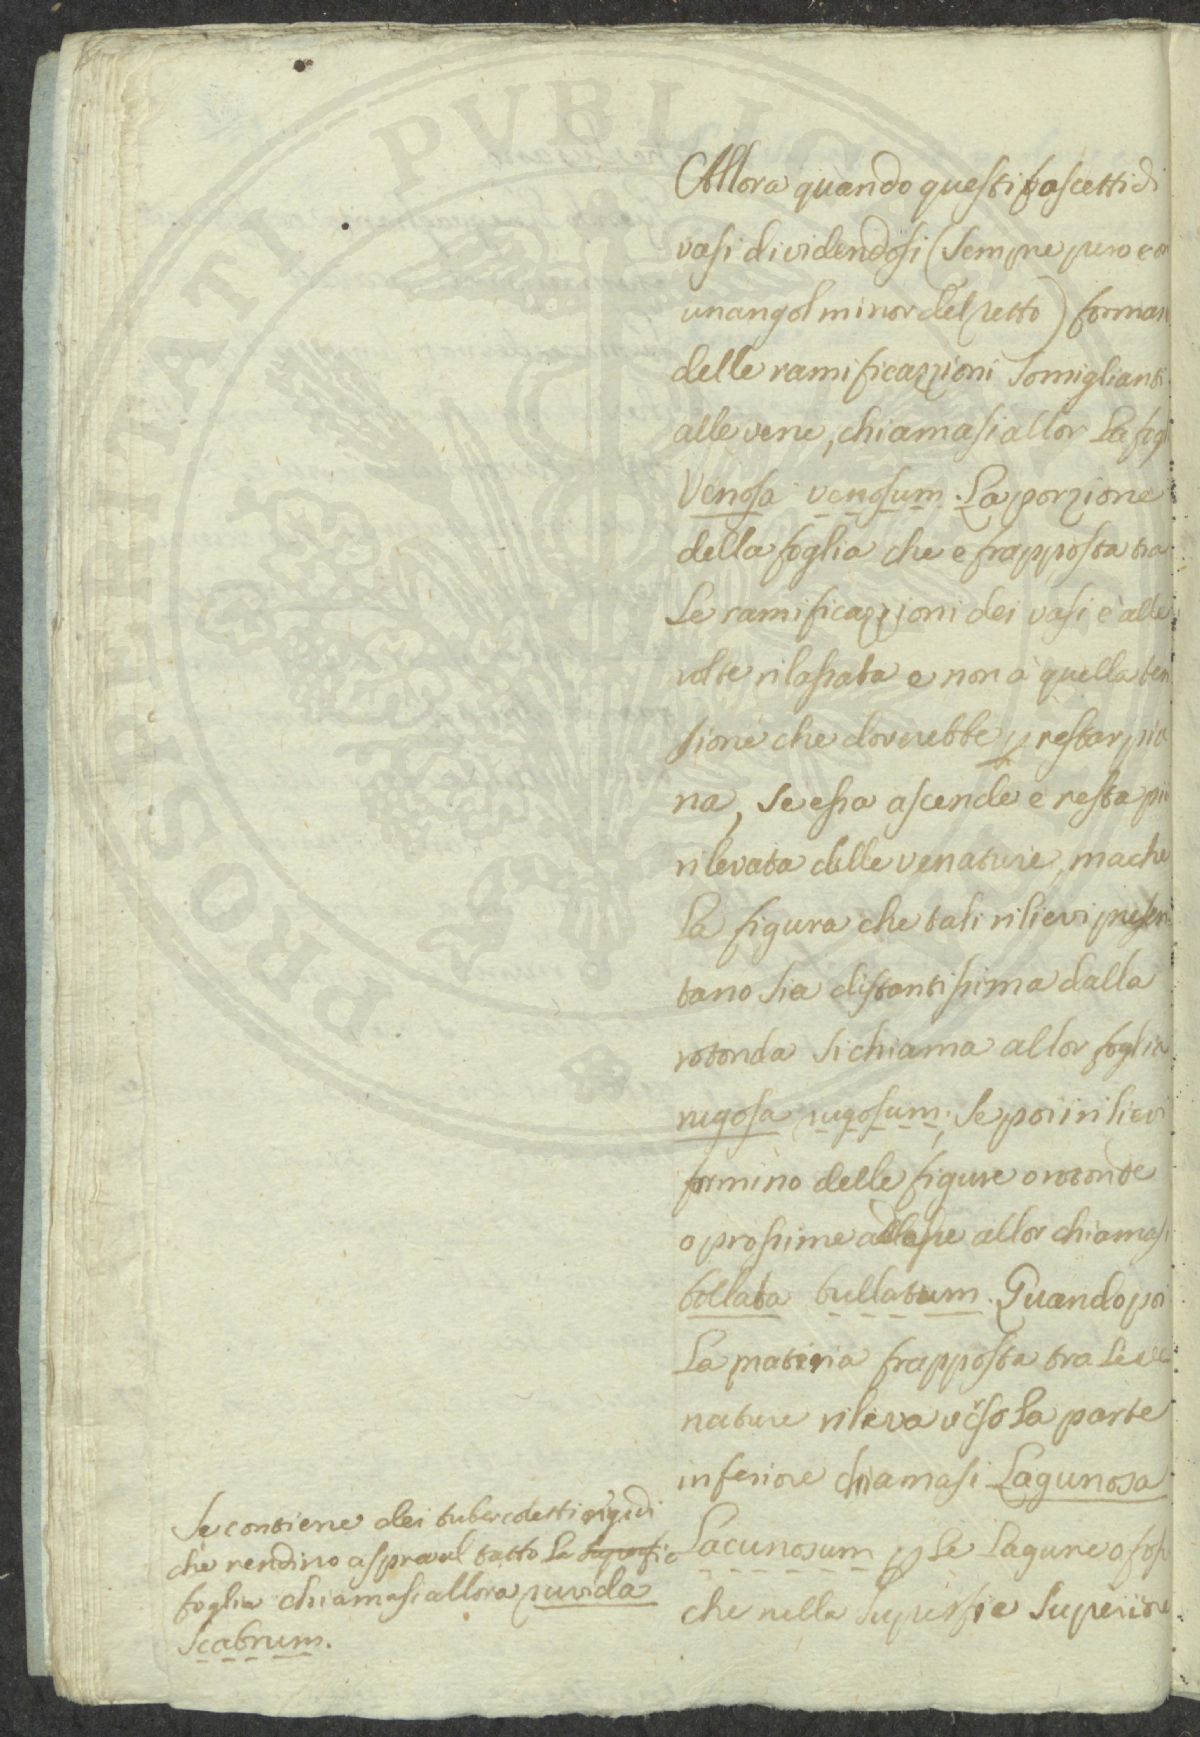 Allora quando questi fascetti di
vasi dividendosi (sempre pero con
un angol minor del retto) forman
delle ramificazzioni somiglianti
alle vene, chiamasi allor la fogl
Venosa venosum. La porzione
della foglia che e frapposta tra
le ramificazzioni dei vasi è alle
volte rilassata e non à quella ten
sione che dovrebbe p restar pia
na, se essa ascende e resta più
rilevata delle venature, ma che
la figura che tali rilievi presen
tano sia distantissima dalla
rotonda si chiama allor foglia
rugosa rugosum; se poi i rilievi
formino delle figure o rotonde
o prossime ad esse allor chiamasi
bollata bullatum. Quando poi
la materia frapposta tra le ve
nature rileva verso la parte
inferiore chiamasi Lagunosa
Lacunosum p le Lagune o fosse
che nella superfie superiore
Se contiene dei tubercoletti rigidi
che rendino aspra al tatto la superfie
foglia chiamasi allora ruvida
Scabrum.
PROSPERITATI PUBLICAE